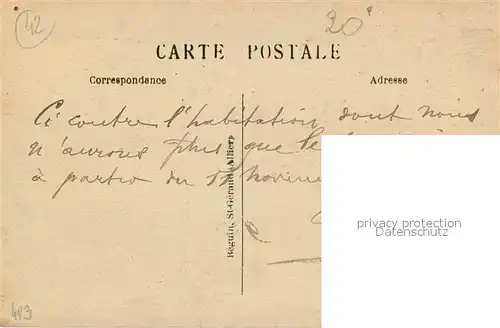 42
20
CARTE POSTALE
Correspondance
Adresse
Ci contre l'habitation dont nous
n'aurons plus que le
à partir du 11 Novem
Béguin, St-Gérand (Allier)
privacy protection
Datenschutz
493